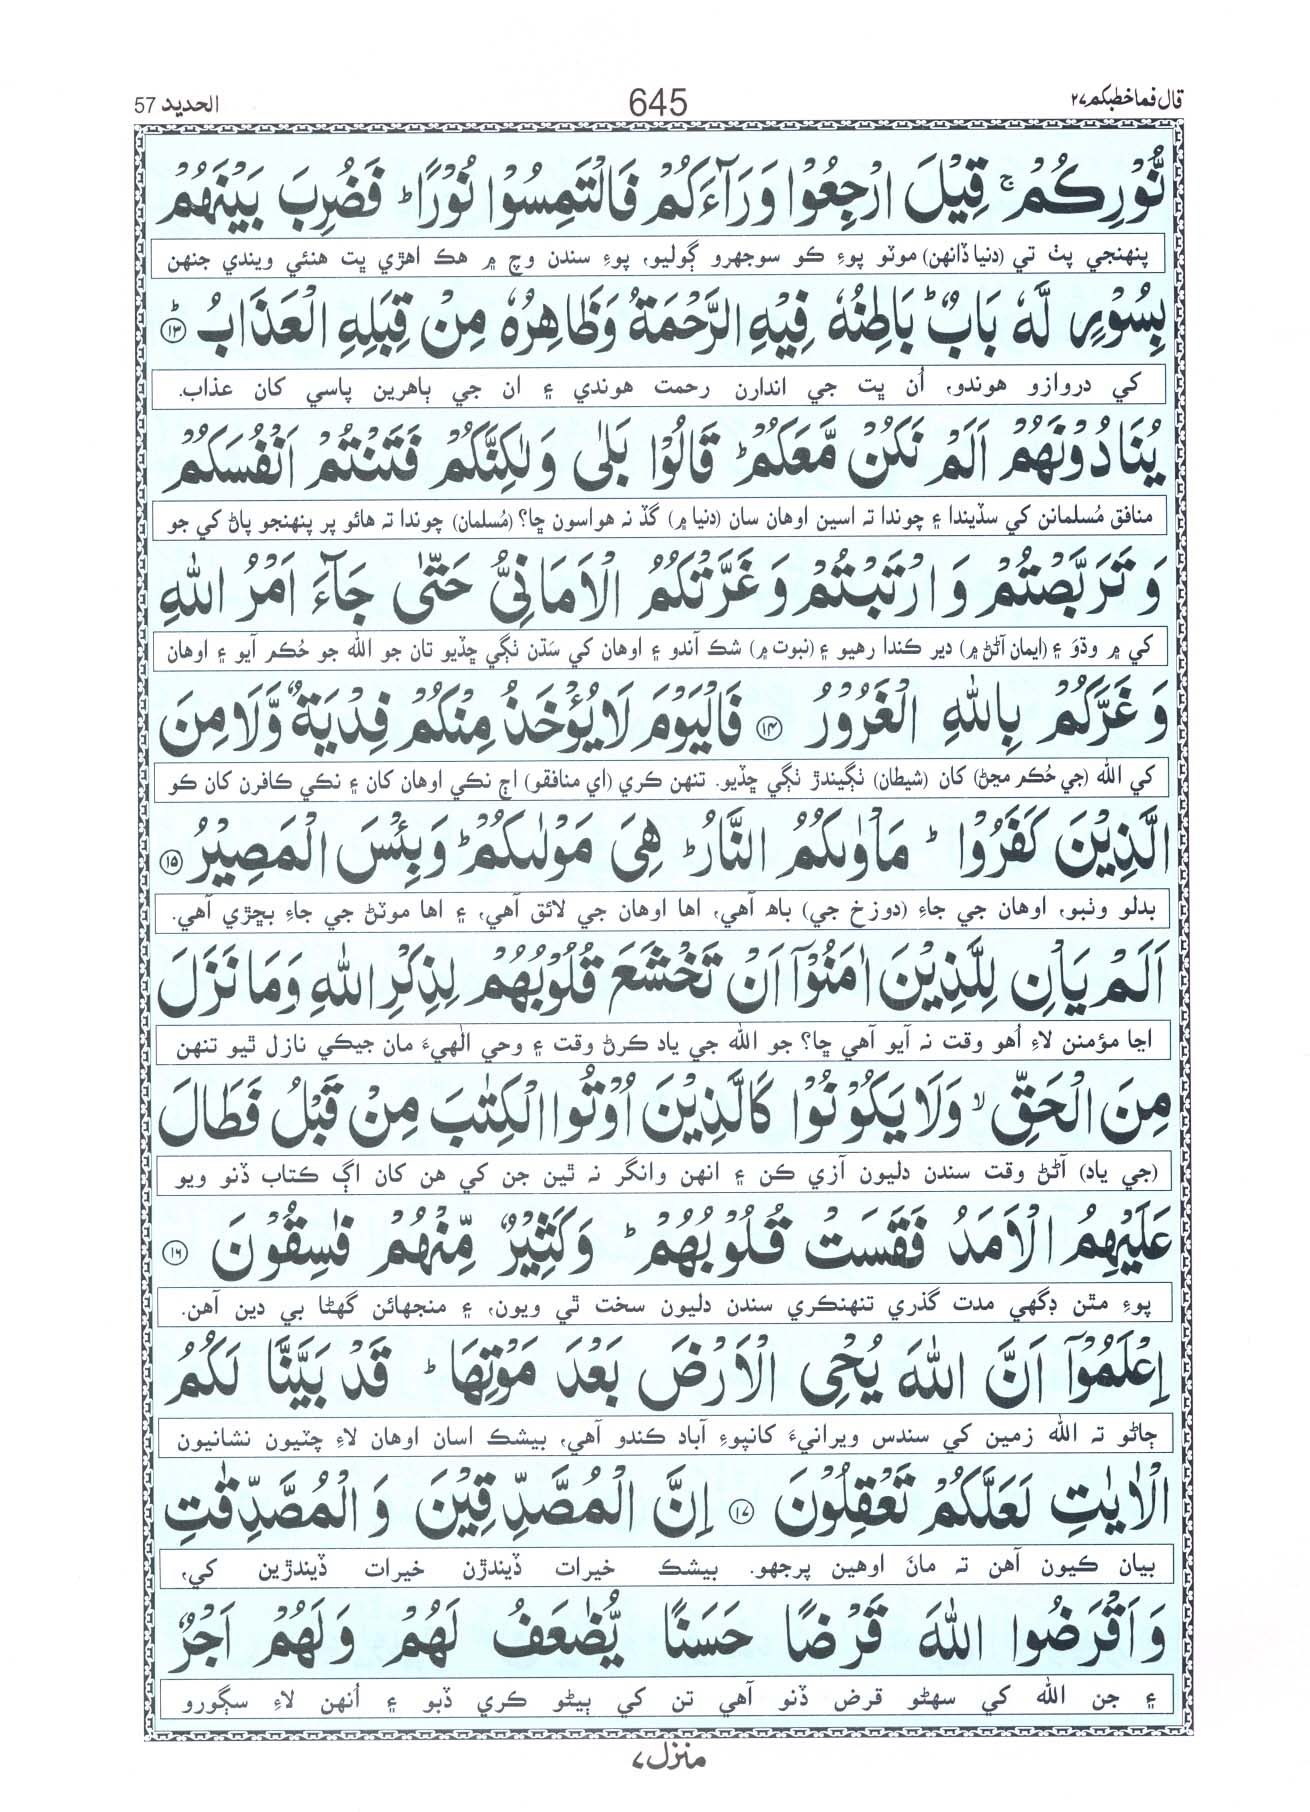 قال فماخطبكم ٢٧
645
الحديد 57
نُّوْرِكُمْ ۚ قِيْلَ ارْجِعُوْا وَرَآءَكُمْ فَالْتَمِسُوْا نُوْرًا ؕ فَضُرِبَ بَيْنَهُمْ
پنهنجي پٺ تي (دنيا ڏانهن) موٽو پوءِ ڪو سوجهرو ڳوليو، پوءِ سندن وچ ۾ هڪ اهڙي ڀت هنئي ويندي جنهن
بِسُوْرٍ لَّهٗ بَابٌ ؕ بَاطِنُهٗ فِيْهِ الرَّحْمَةُ وَظَاهِرُهٗ مِنْ قِبَلِهِ الْعَذَابُ ؕ ۝۱۳
کي دروازو هوندو، اُن ڀت جي اندارن رحمت هوندي ۽ ان جي ٻاهرين پاسي کان عذاب.
يُنَادُوْنَهُمْ اَلَمْ نَكُنْ مَّعَكُمْ ؕ قَالُوْا بَلٰى وَلٰكِنَّكُمْ فَتَنْتُمْ اَنْفُسَكُمْ
منافق مُسلمانن کي سڏيندا ۽ چوندا ته اسين اوهان سان (دنيا ۾) گڏ نه هواسون ڇا؟ (مُسلمان) چوندا ته هائو پر پنهنجو پاڻ کي جو
وَتَرَبَّصْتُمْ وَارْتَبْتُمْ وَغَرَّتْكُمُ الْاَمَانِيُّ حَتّٰى جَآءَ اَمْرُ اللّٰهِ
کي ۾ وڌوَ ۽ (ايمان آڻڻ ۾) دير ڪندا رهيو ۽ (نبوت ۾) شڪ آندو ۽ اوهان کي سَڌن ٺڳي ڇڏيو تان جو الله جو حُڪم آيو ۽ اوهان
وَغَرَّكُمْ بِاللّٰهِ الْغَرُوْرُ ۝۱۴ فَالْيَوْمَ لَا يُؤْخَذُ مِنْكُمْ فِدْيَةٌ وَّلَا مِنَ
کي الله (جي حُڪم مڃڻ) کان (شيطان) ٺڳيندڙ ٺڳي ڇڏيو. تنهن ڪري (اي منافقو) اڄ نڪي اوهان کان ۽ نڪي ڪافرن کان ڪو
الَّذِيْنَ كَفَرُوْا ؕ مَاْوٰىكُمُ النَّارُ ؕ هِيَ مَوْلٰىكُمْ ؕ وَبِئْسَ الْمَصِيْرُ ۝۱۵
بدلو وٺبو، اوهان جي جاءِ (دوزخ جي) باھ آهي، اها اوهان جي لائق آهي، ۽ اها موٽڻ جي جاءِ بڇڙي آهي.
اَلَمْ يَاْنِ لِلَّذِيْنَ اٰمَنُوْٓا اَنْ تَخْشَعَ قُلُوْبُهُمْ لِذِكْرِ اللّٰهِ وَمَا نَزَلَ
اڃا مؤمنن لاءِ اُهو وقت نه آيو آهي ڇا؟ جو الله جي ياد ڪرڻ وقت ۽ وحي الٰهيءَ مان جيڪي نازل ٿيو تنهن
مِنَ الْحَقِّ ۙ وَلَا يَكُوْنُوْا كَالَّذِيْنَ اُوْتُوا الْكِتٰبَ مِنْ قَبْلُ فَطَالَ
(جي ياد) آڻڻ وقت سندن دليون آزي ڪن ۽ انهن وانگر نہ ٿين جن کي هن کان اڳ ڪتاب ڏنو ويو
عَلَيْهِمُ الْاَمَدُ فَقَسَتْ قُلُوْبُهُمْ ؕ وَكَثِيْرٌ مِّنْهُمْ فٰسِقُوْنَ ۝۱۶
پوءِ مٿن ڊگهي مدت گذري تنهنڪري سندن دليون سخت ٿي ويون، ۽ منجهائن گهڻا بي دين آهن.
اِعْلَمُوْٓا اَنَّ اللّٰهَ يُحْيِ الْاَرْضَ بَعْدَ مَوْتِهَا ؕ قَدْ بَيَّنَّا لَكُمُ
ڄاڻو ته الله زمين کي سندس ويرانيءَ کانپوءِ آباد ڪندو آهي، بيشڪ اسان اوهان لاءِ چٽيون نشانيون
الْاٰيٰتِ لَعَلَّكُمْ تَعْقِلُوْنَ ۝۱۷ اِنَّ الْمُصَّدِّقِيْنَ وَالْمُصَّدِّقٰتِ
بيان ڪيون آهن ته مانَ اوهين پرجهو. بيشڪ خيرات ڏيندڙن خيرات ڏيندڙين کي،
وَاَقْرَضُوا اللّٰهَ قَرْضًا حَسَنًا يُّضٰعَفُ لَهُمْ وَلَهُمْ اَجْرٌ
۽ جن الله کي سهڻو قرض ڏنو آهي تن کي ٻيڻو ڪري ڏبو ۽ اُنهن لاءِ سڳورو
منزل ۷